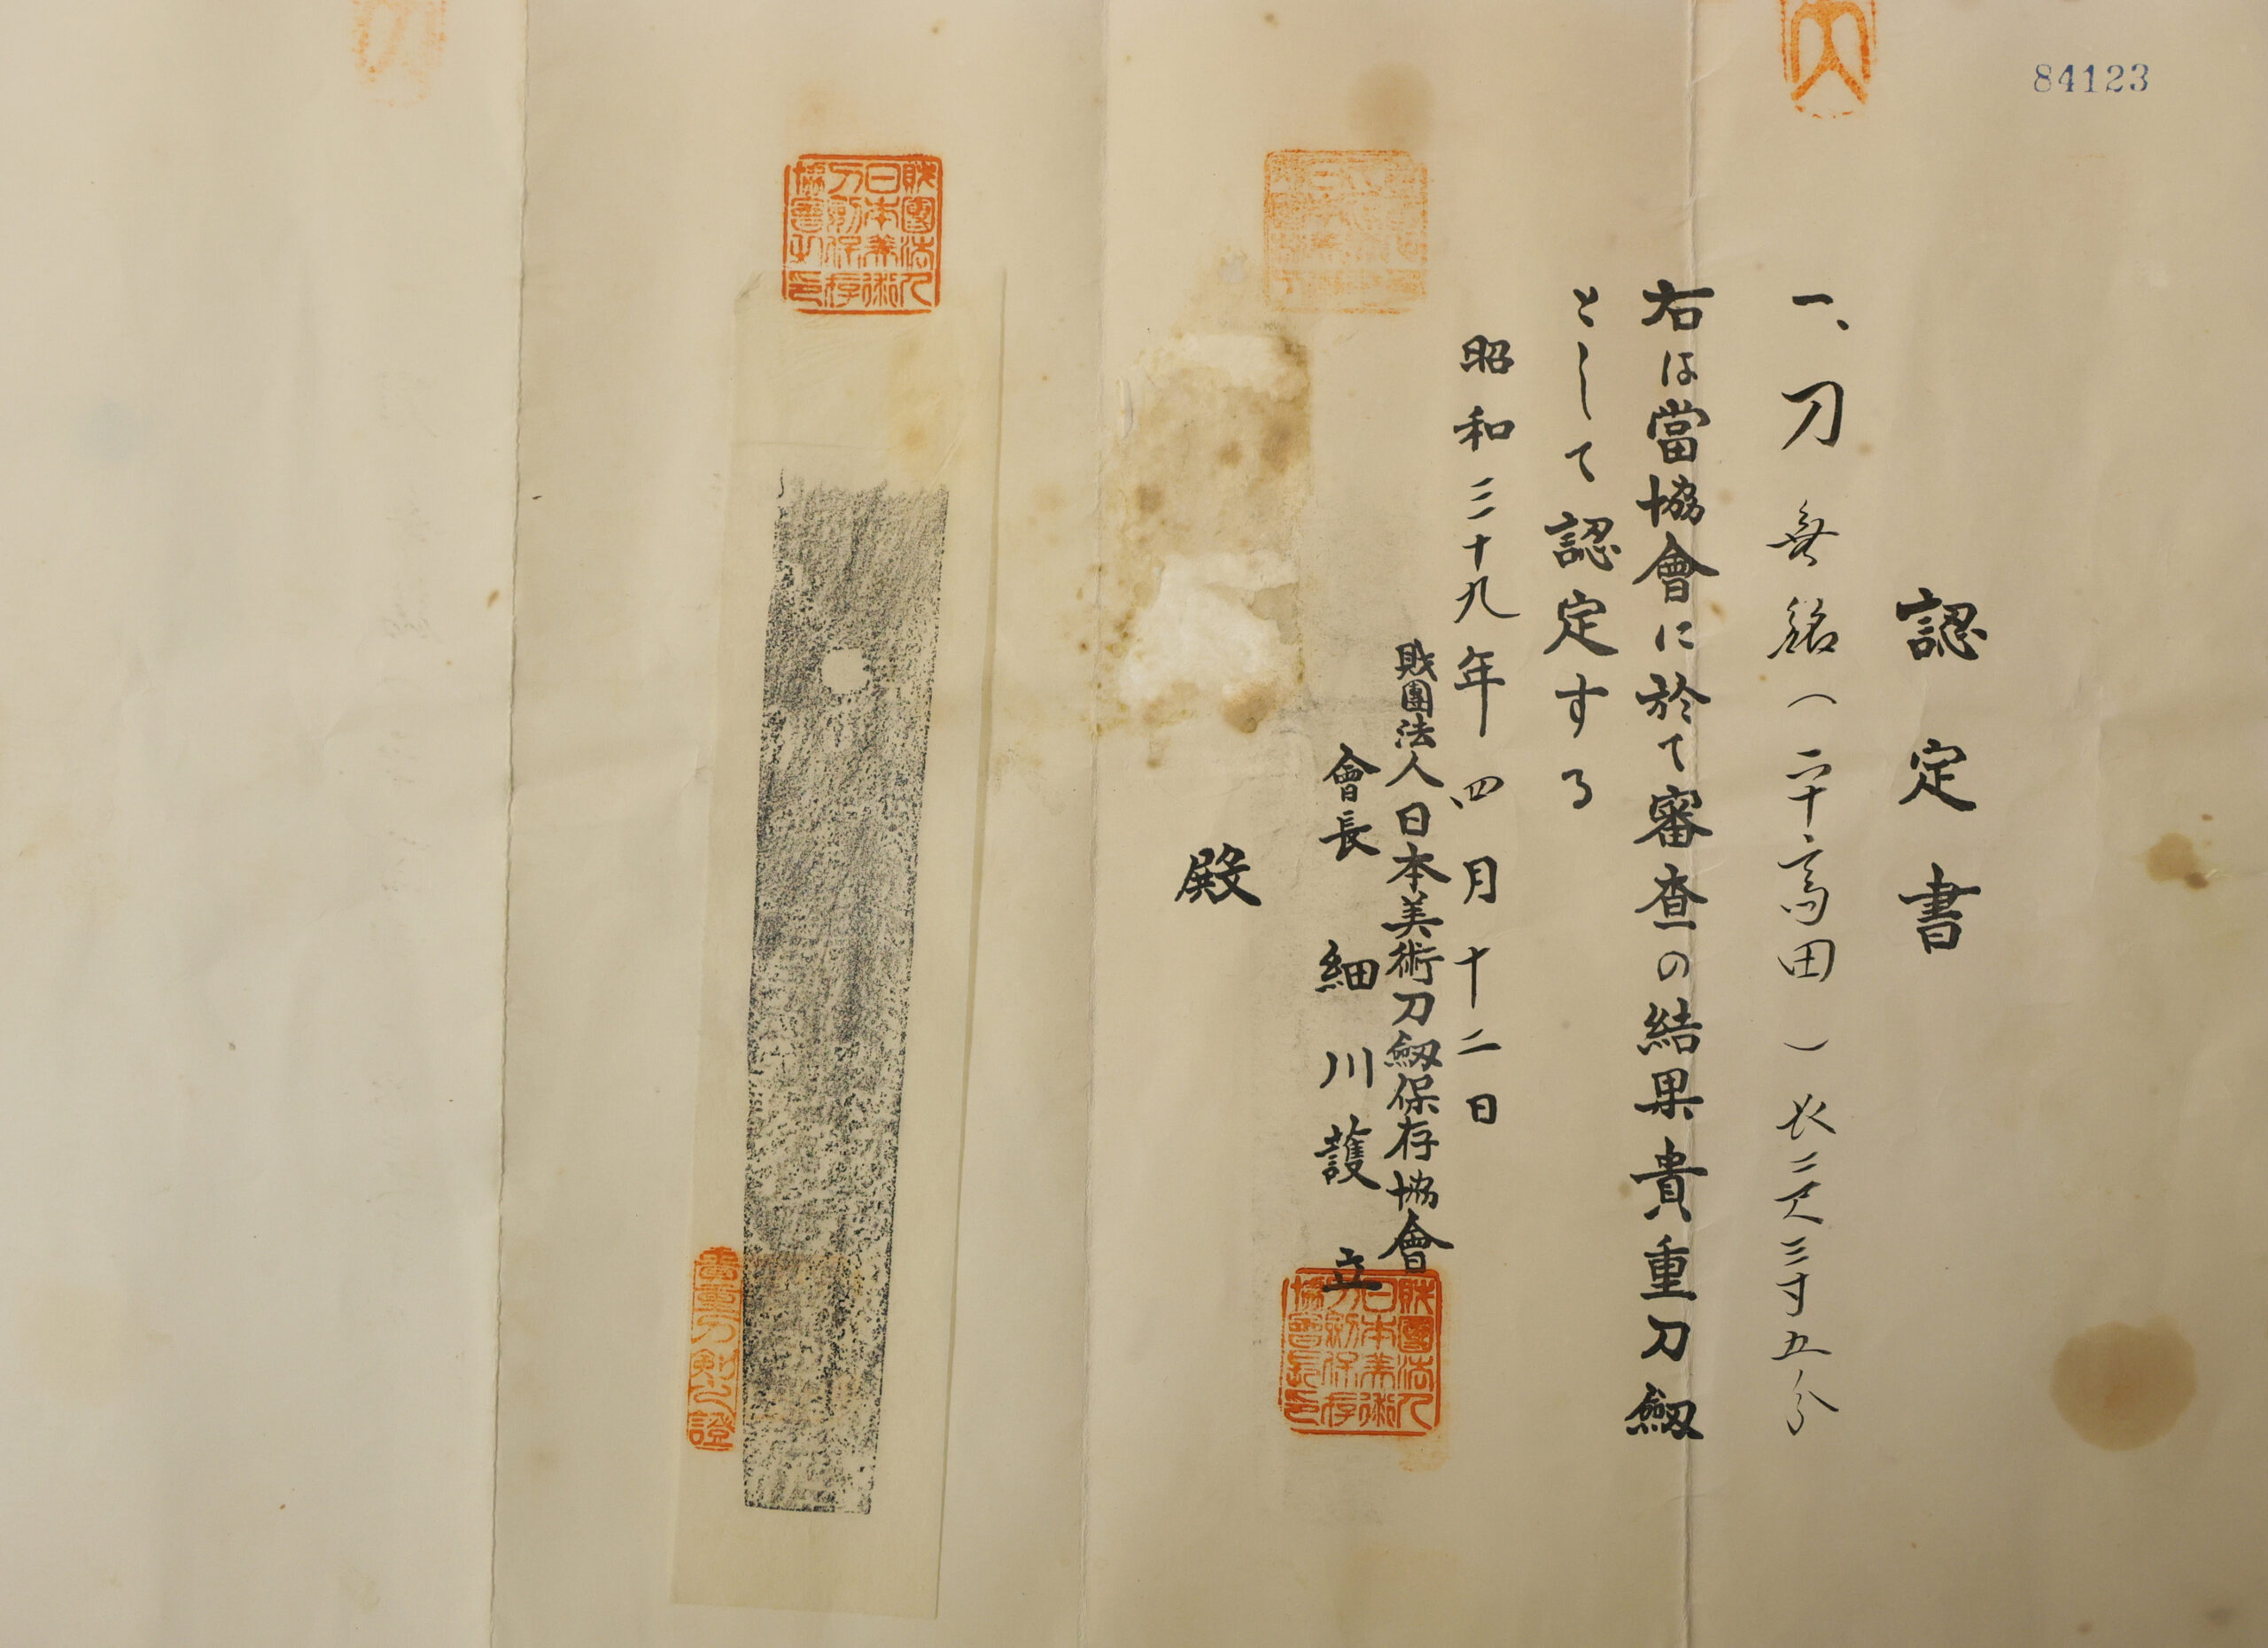 84123
認定書
一、刀 無銘(平高田)長二尺三寸五分
右は當協會に於て審査の結果貴重刀劔
として認定する
昭和三十九年四月十二日
財團法人日本美術刀劔保存協會
會長 細川護立
財團法人日本美術刀剣保存協會長印
殿
財團法人日本美術刀剣保存協會之印
貴重刀剣之證